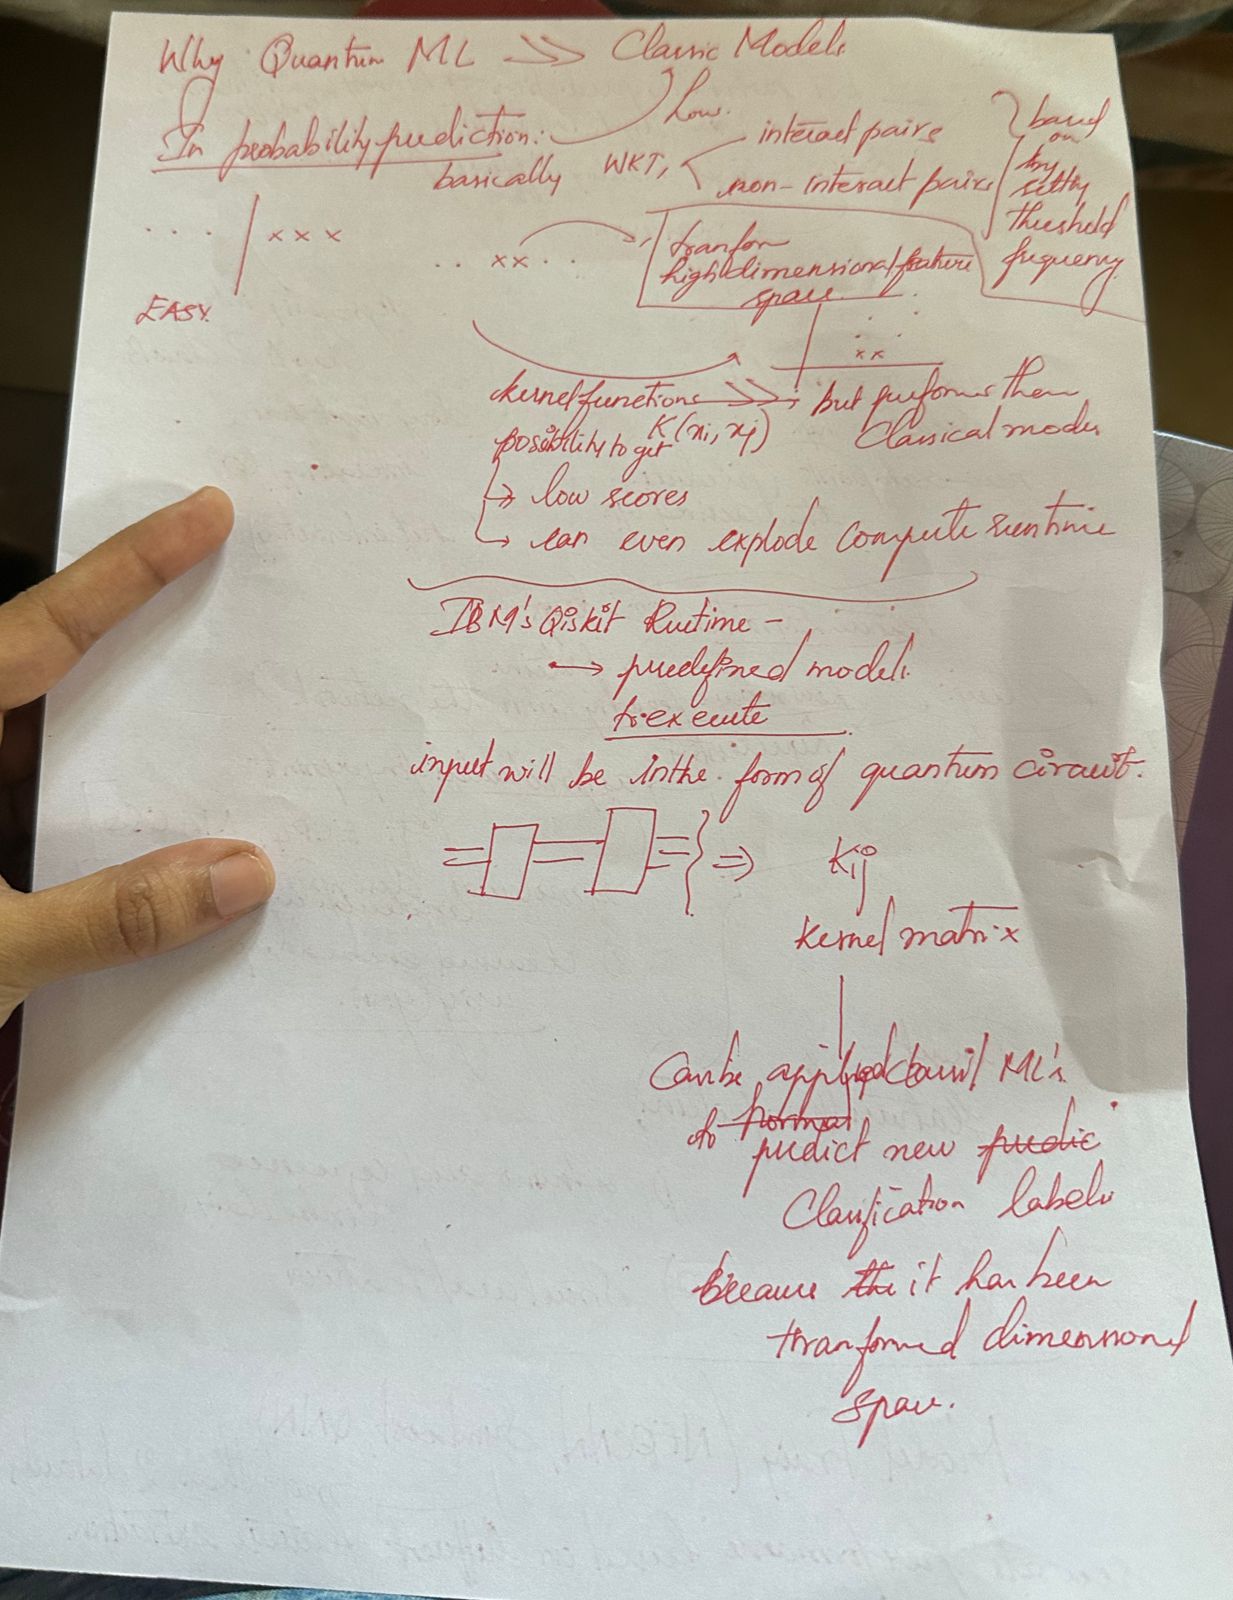 Why Quantum ML >> Classic Models
In probability prediction:
how.
basically WKT,
interact pairs
non-interact pairs
based
on
by
setting
threshold
frequency
. . . . | x x x
. . x x . .
EASY.
tranform
high dimensional feature
space
. . .
x x
kernel functions >> ; but performs then
K(xi, xj) Classical modes
possibility to get
→ low scores
→ can even explode compute runtime
IBM's Qiskit Runtime -
→ predefined models
to execute
input will be in the form of quantum circuit.
} ⇒ Kij
Kernel matrix
Can be applied ML's
to normal
predict new predic
Clasification labels
because the it has been
tranformed dimensional
space.